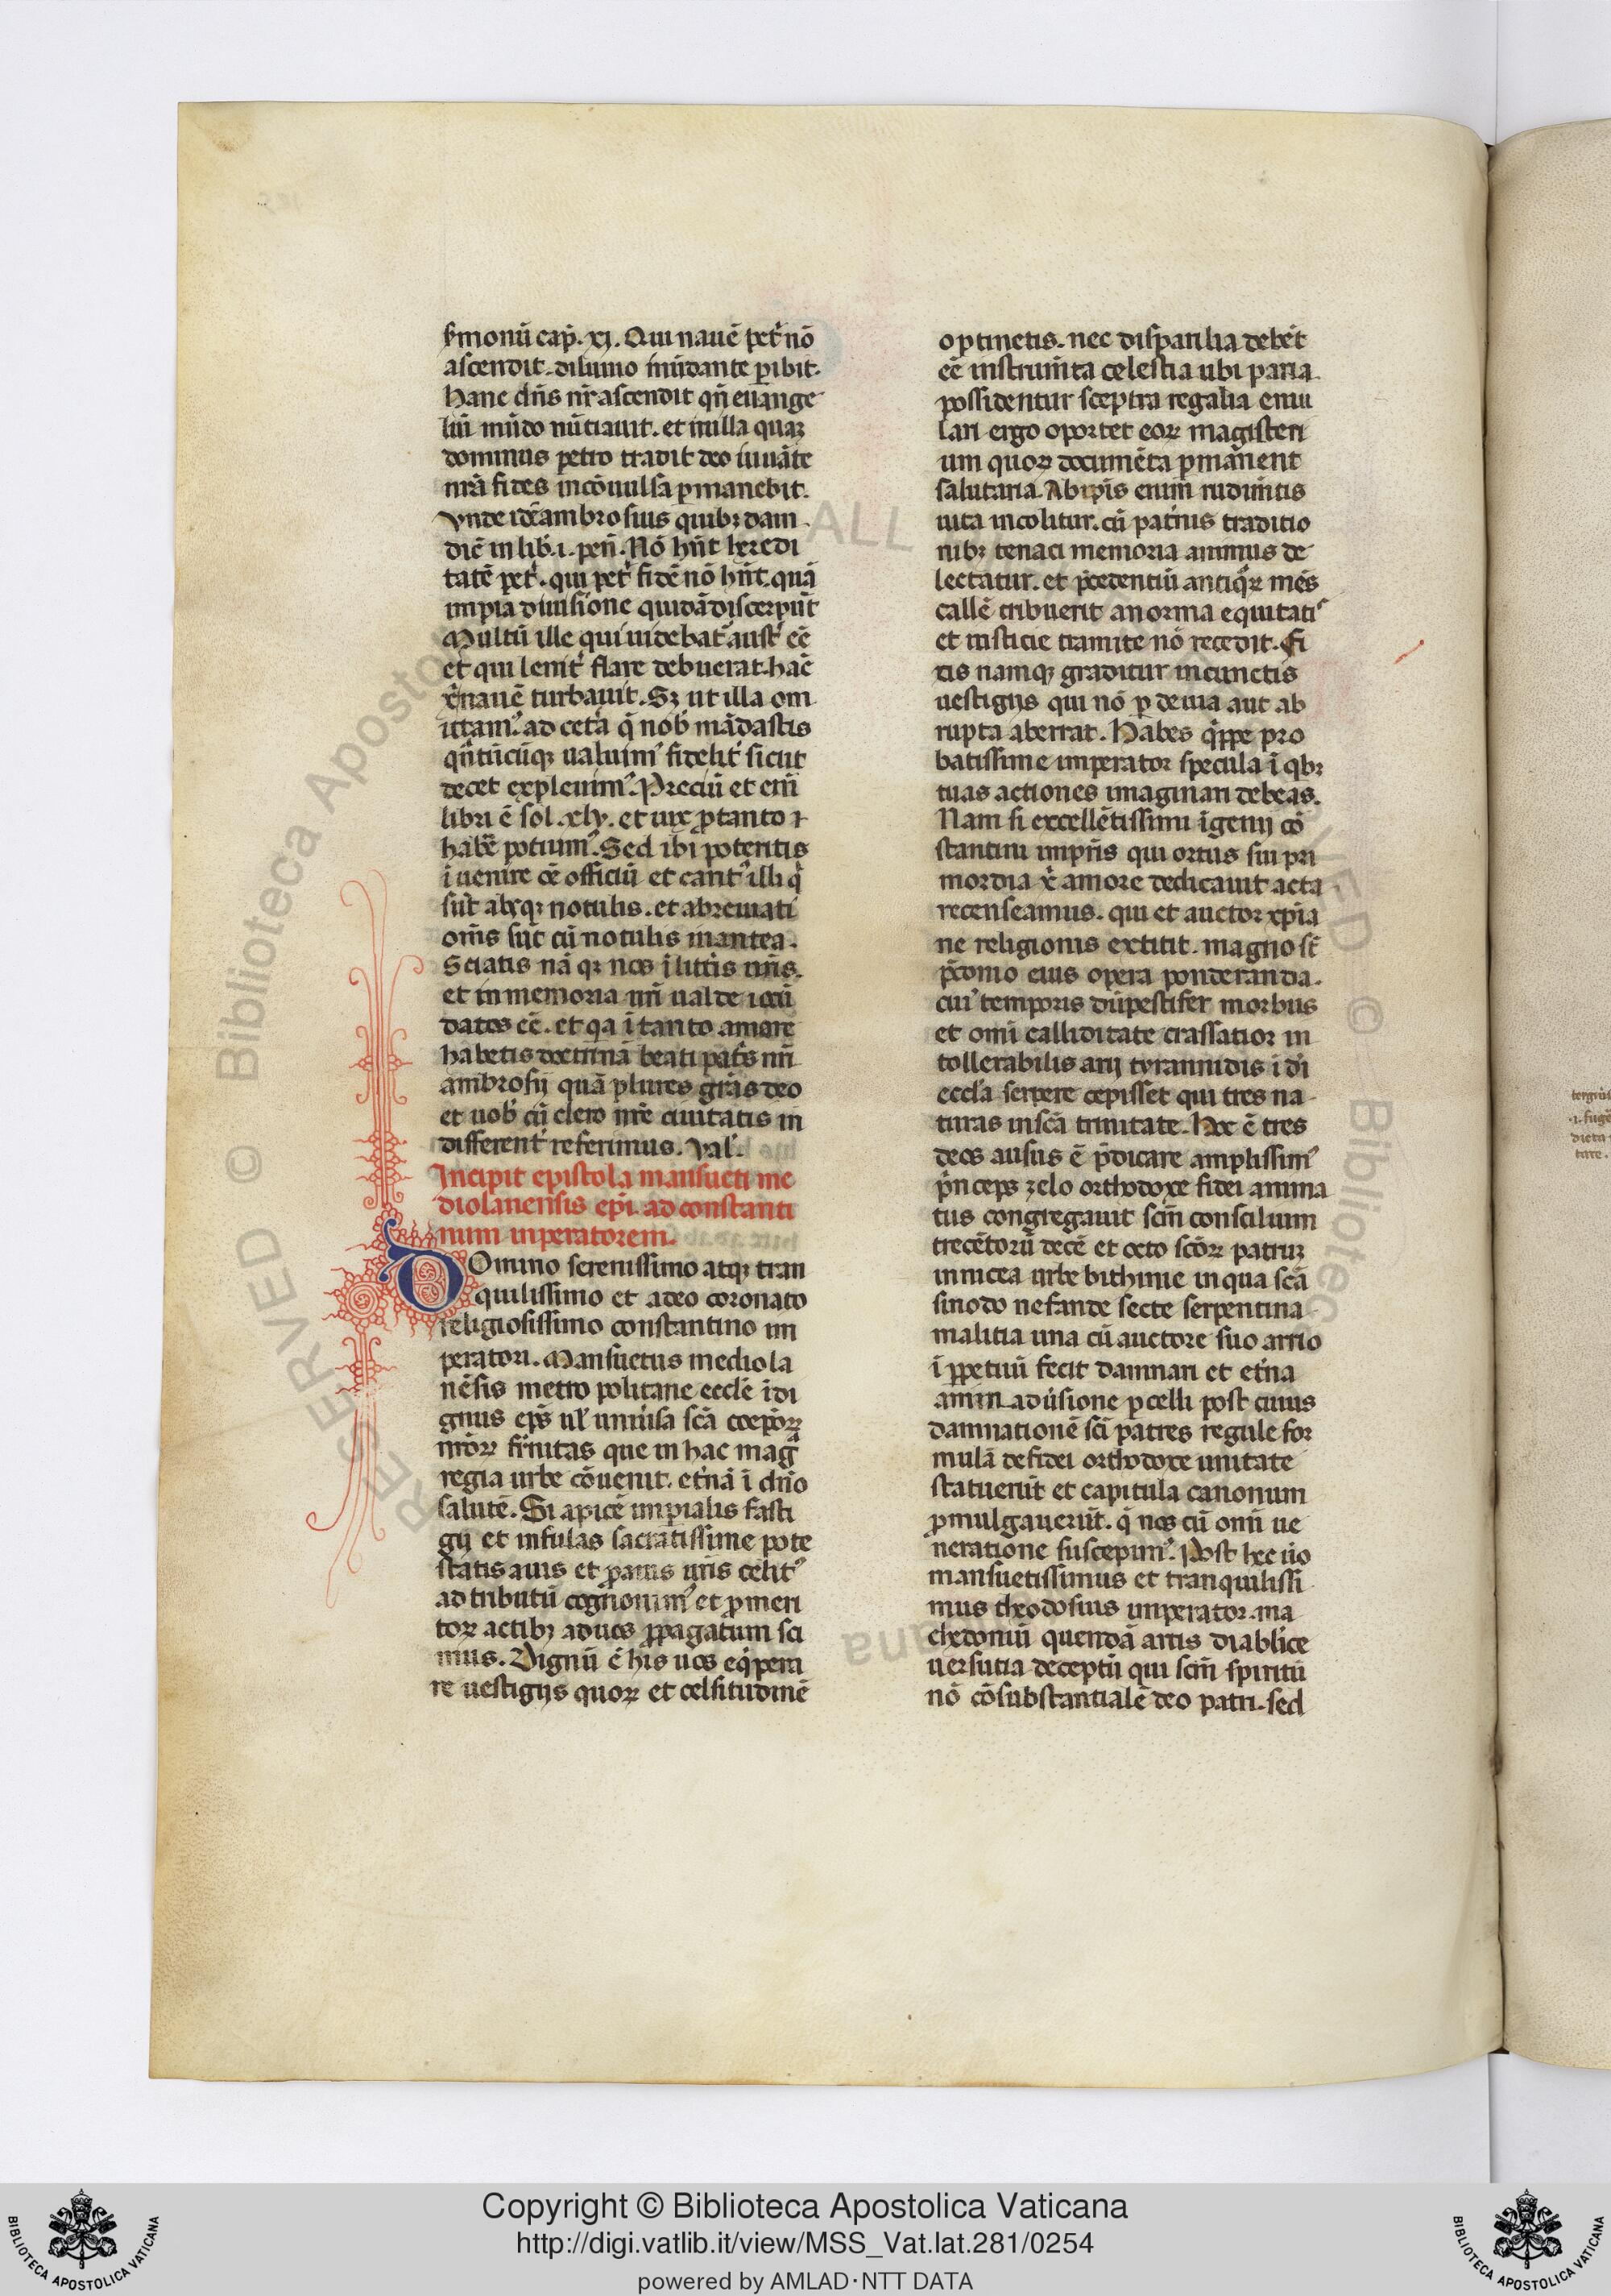 s̾monū cap̄. xj. Qui nauē pet̾ nō
ascendit. diluuio inūdante ꝑibit.
Hanc dn̄s nr̄ ascendit qn̄ euange
liū mūdo nūtiauit. et in illa quaꝫ
dominus petro tradit deo iuuāte
nr̄a fides incōuulsa ꝑmanebit.
Vnde idē ambrosius quibꝫdam
dic̄ in lib̾. i. pen̄. Nō hn̄t heredi
tatē pet̾. qui pet̾ fidē nō hn̄t. quā
impia diuisione quidā discerpūt
Multū ille qui uidebat̾ aust̾ eē
et qui lenit̾ flare debuerat. hac̄
x̄ nauē turbauit. Sꝫ ut illa om
ittam᷒. ad cet̾a q̄ nob̾ mādastis
qn̄tūcūqꝫ ualuim᷒ fidelit̾ sicut
decet expleuim᷒. Preciū et enī
libri ē sol. xlv. et uix ꝓ tanto ⁊
hab̾e potuim᷒. Sed ibi poteritis
īuenire oē officiū et cant᷒ illi q̾
sūt absqꝫ notulis. et abreuiati
om̄s sūt cū notulis in antea.
Sciatis nā qꝫ nos ī litt̾is nr̄is.
et in memoria nr̄i ualde iocū
datos eē. et qa ī tanto amore
habetis doctrinā beati pat̾s nr̄i
ambrosij quā plures gr̄as deo
et uob̾ cū clero nr̄e ciuitatis in
different̾ referimus. Val̾.
Incipit epistola mansueti me
diolanensis ep̄i. ad constanti
num inperatorem.
Domino serenissimo atqꝫ tran
quilissimo et a deo coronato
religiosissimo constantino im
peratori. Mansuetus mediola
nēsis metropolitane eccl̄e īdi
gnus ep̄s ul̾ uniu̾sa sc̄a coep̄oꝝ
nr̄oꝝ fr̄nitas que in hac magª
regia urbe cōuenit. et̾nā ī dn̄o
salutē. Si apicē imꝑialis fasti
gij et infulas sacratissime pote
statis auis et ꝓauis uris celit᷒
ad tributū cognouim᷒ et ꝓmeri
toꝝ actibꝫ ad uos ꝓpagatum sci
mus. Dignū ē his uos eq̾pera
re uestigijs quoꝝ et celsitudinē
optinetis. nec disparilia debēt
eē instrum̄ta celestia ubi paria
possidentur sceptra regalia emu
lari ergo oportet eoꝝ magisteri
um quoꝝ documēta ꝑmanent
salutaria. Ab ip̄is enim rudim̄tis
iuta incolitur. cū pat̾nis traditio
nibꝫ tenaci memoria animus de
lectatur. et p̄cedentiū antiq̾ꝝ mēs
callē tribuerit a norma equitati᷒
et iusticie tramite nō recedit. Fi
dis namqꝫ graditur in cunctis
uestigijs qui nō ꝑ deuia aut ab
rupta aberrat. Habes q̾ppe pro
batissime imperator specula ī qbꝫ
tuas actiones imaginari debeas.
Nam si excellētissimi īgenij cō
stantini imp̄ris qui ortus sui pri
mordia x̄ amore dedicauit acta
recenseamus. qui et auctor xp̄ia
ne religionis extitit. magno st̄
p̄conio eius opera ponderanda.
cui᷒ temporis dū pestifer morbus
et omī calliditate crassatior in
tollerabilis arij tyrannidis ī d̾i
eccl̄a serpere cepisset qui tres na
turas in sc̄a trinitate. Hoc ē tres
deos ausus ē p̄dicare amplissim᷒
p̾nceps zelo orthodoxe fidei anima
tus congregauit sc̄m consilium
trecētorū decē et octo sc̄oꝝ patruꝫ
in nicea urbe bithinie in qua sc̄a
sinodo nefande secte serpentina
malitia una cū auctore suo arrio
ī ꝑpetuū fecit damnari et et̾na
anim adu̾sione ꝑcelli post cuius
damnationē sc̄i patres regule for
mulā de fidei orthodoxe unitate
statuerūt et capitula canonum
ꝓmulgauerūt. q̄ nos cū omī ue
neratione suscepim᷒. Post hec u̾o
mansuetissimus et tranquilissi
mus theodosius imperator. ma
chedoniū quendā artis diablice
uersutia deceptū qui sc̄m spiritū
nō cōsubstantialē deo patri. sed
ALL
RESERVED © Biblioteca Apostolica
Copyright © Biblioteca Apostolica Vaticana
http://digi.vatlib.it/view/MSS_Vat.lat.281/0254
powered by AMLAD·NTT DATA
BIBLIOTECA APOSTOLICA VATICANA
BIBLIOTECA APOSTOLICA VATICANA